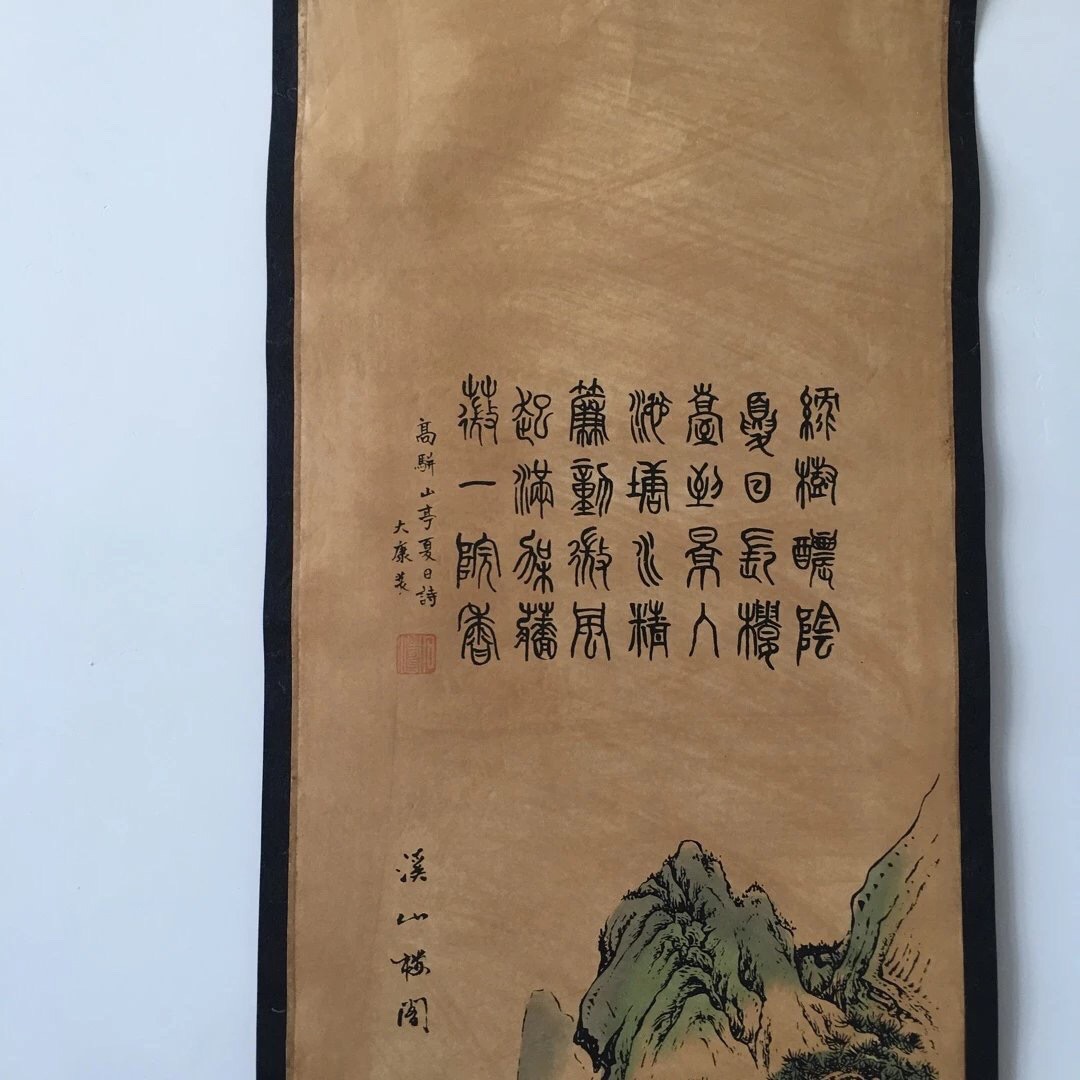 綠樹醲陰
夏日長樓
臺到景入
池塘水精
簾動微風
起滿架薔
薇一院香
高駢山亭夏日詩
大康篆
溪山樓閣